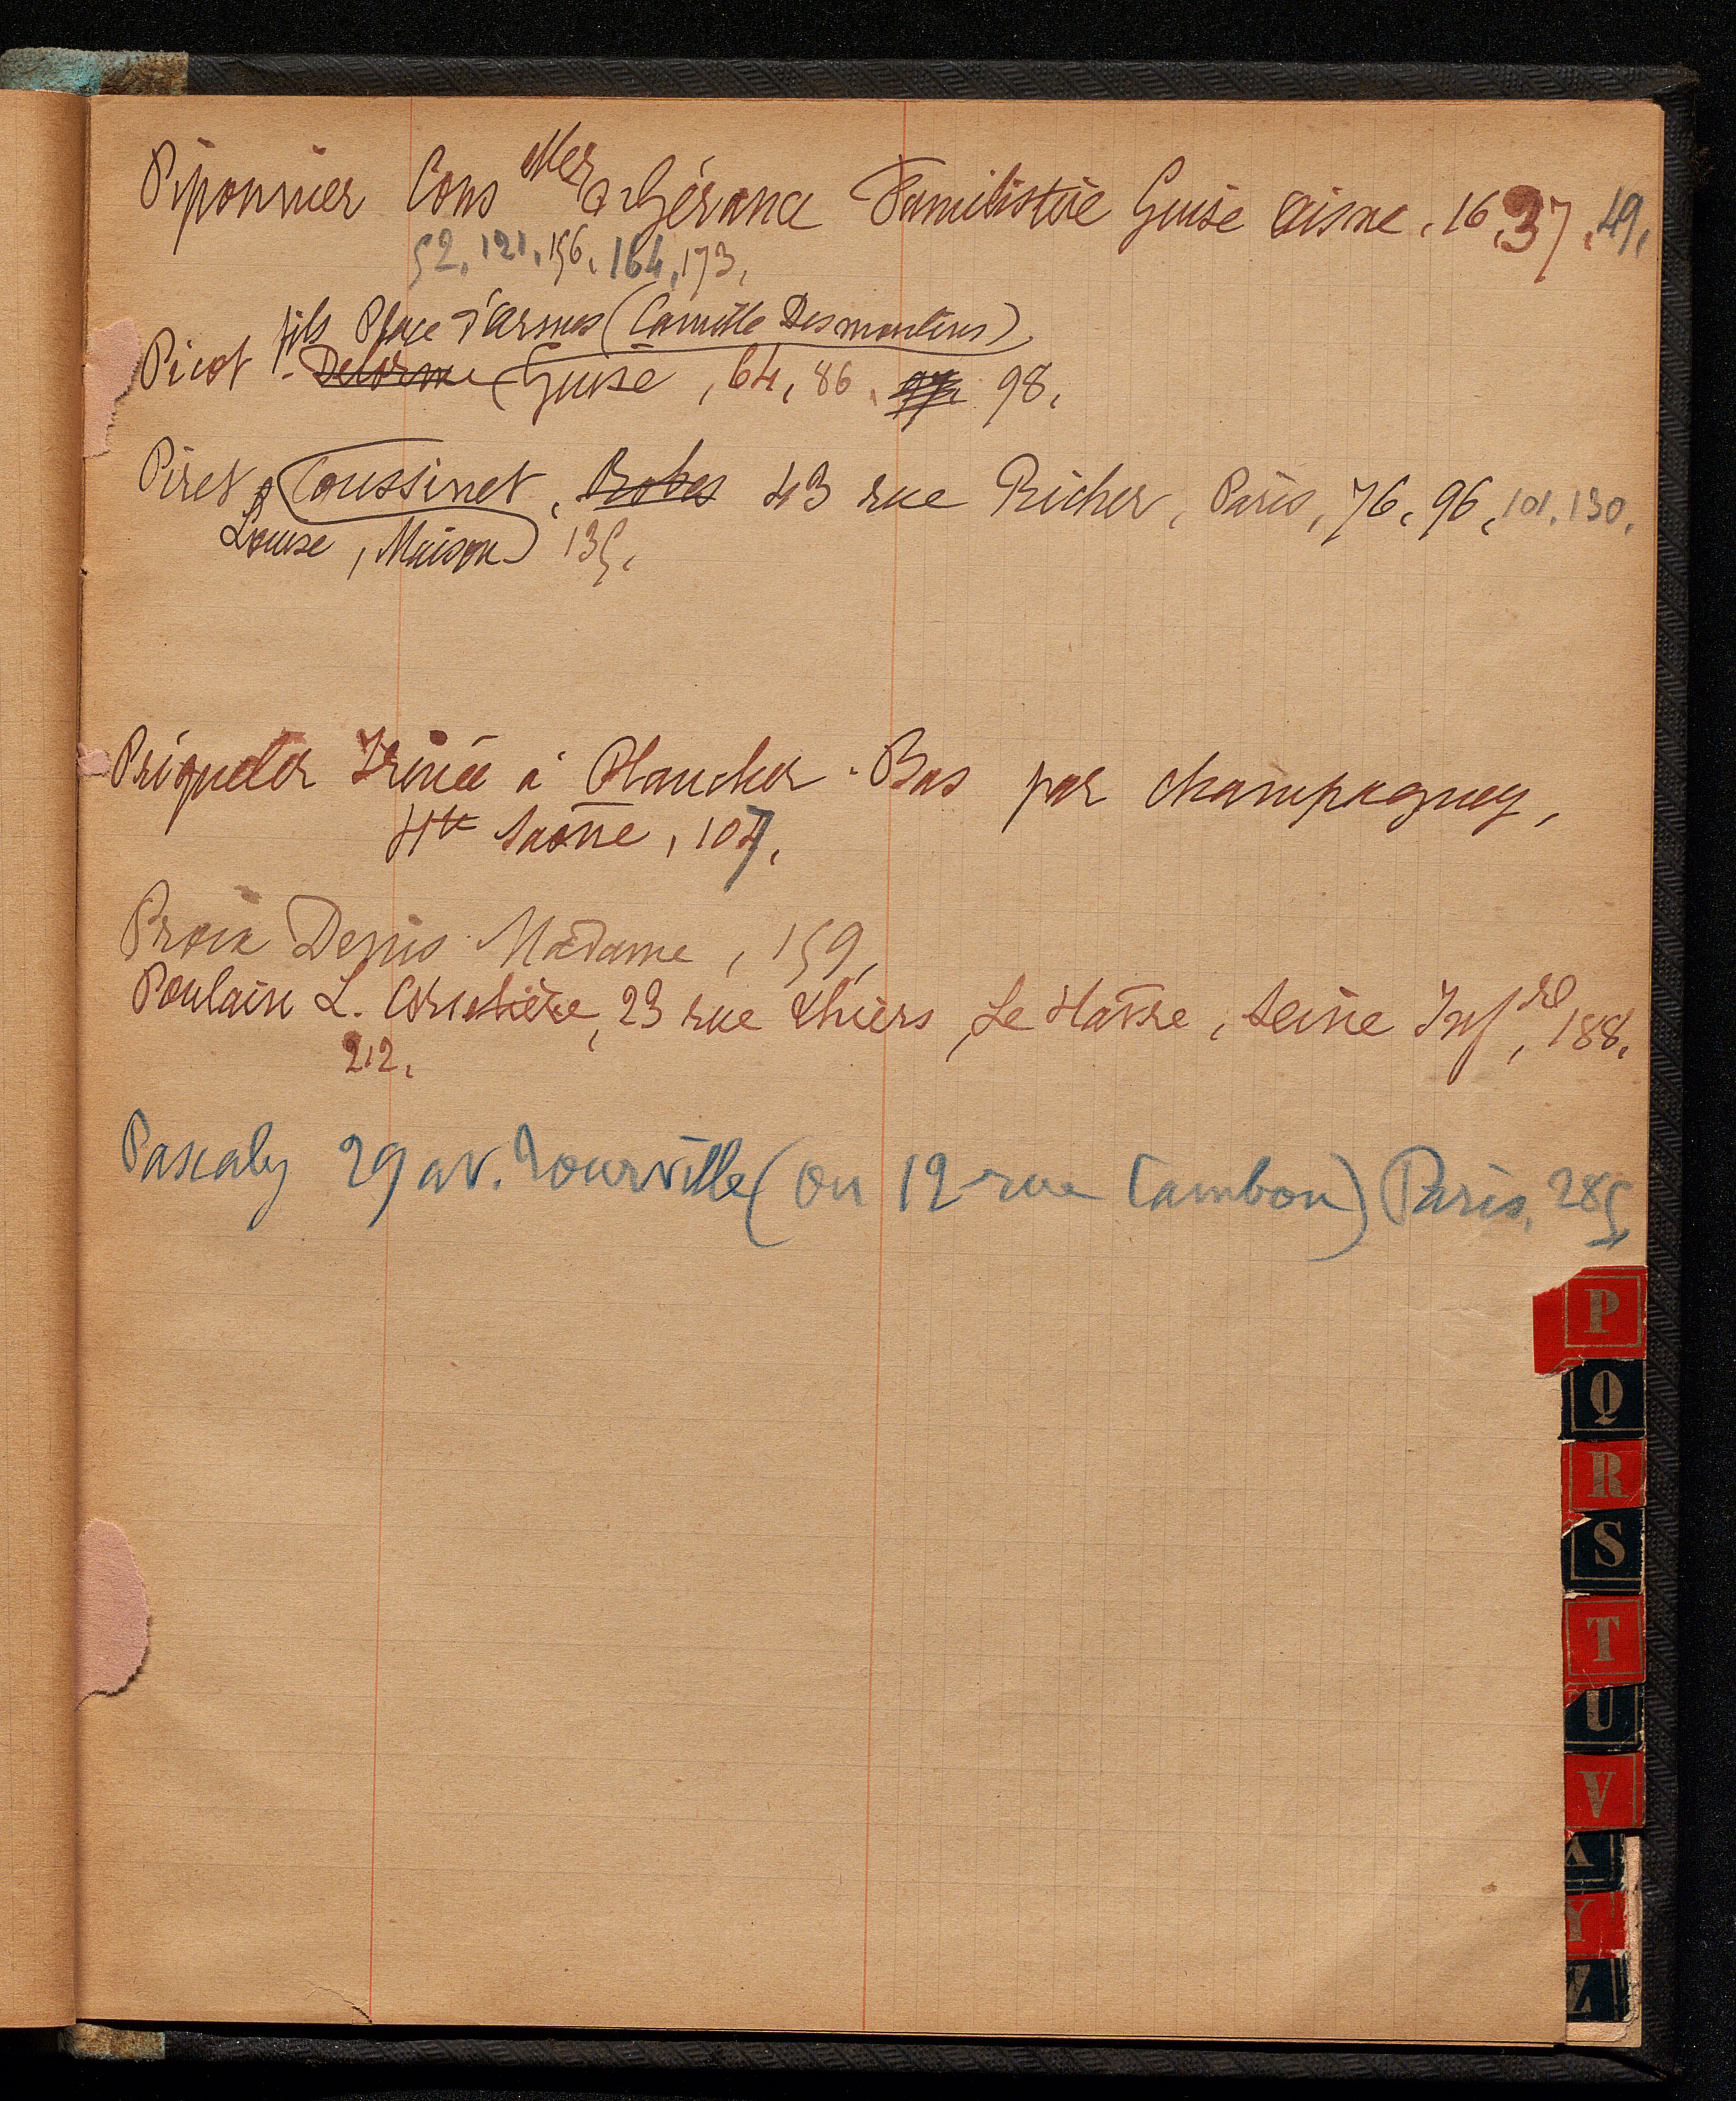 Piponnier Cons eller de Gérance Familistère Guise Aisne, 16, 37, 49,
52, 121, 156, 164, 173,
fils Place d'Armes (Camille Desmoulins)
Picot - Delorme Guise, 64, 86, 97, 98,
Piret Coussinet, Robes 43 rue Richer, Paris, 76, 96, 101, 130,
Louise, Maison 135,
Priqueler Irénée à Plancher-Bas par Champagney,
Hte Saône, 107,
Proix Denis Madame, 159,
Poulain L. Corsetière, 23 rue Thiers, Le Havre, Seine Infre, 188,
212,
Pascaly 29 av. Tourville (ou 12 rue Cambon) Paris, 285,
P
Q
R
S
T
U
V
X
Y
Z